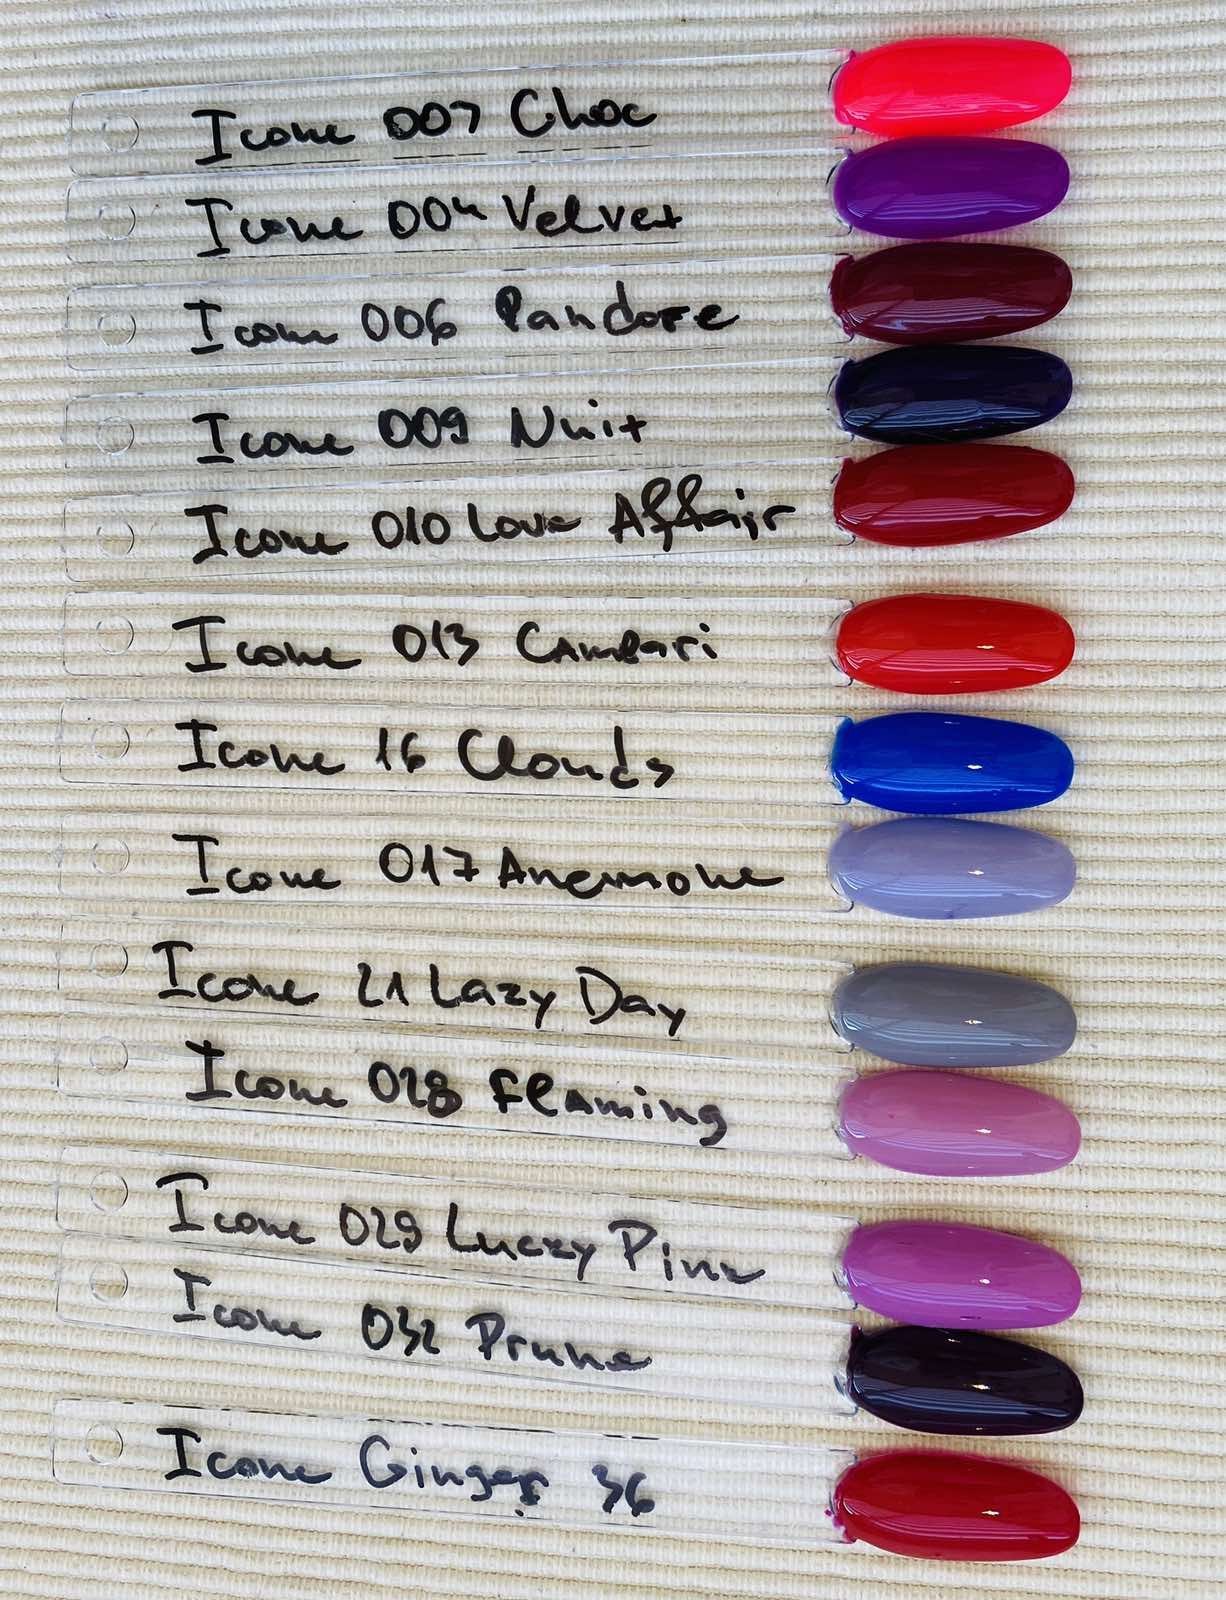 Icone 007 Choc
Icone 004 Velvet
Icone 006 Pandore
Icone 009 Nuit
Icone 010 Love Affair
Icone 013 Campari
Icone 16 Clouds
Icone 017 Anemone
Icone 21 Lazy Day
Icone 028 Flaming
Icone 029 Luczy Pink
Icone 032 Prune
Icone Ginger 36